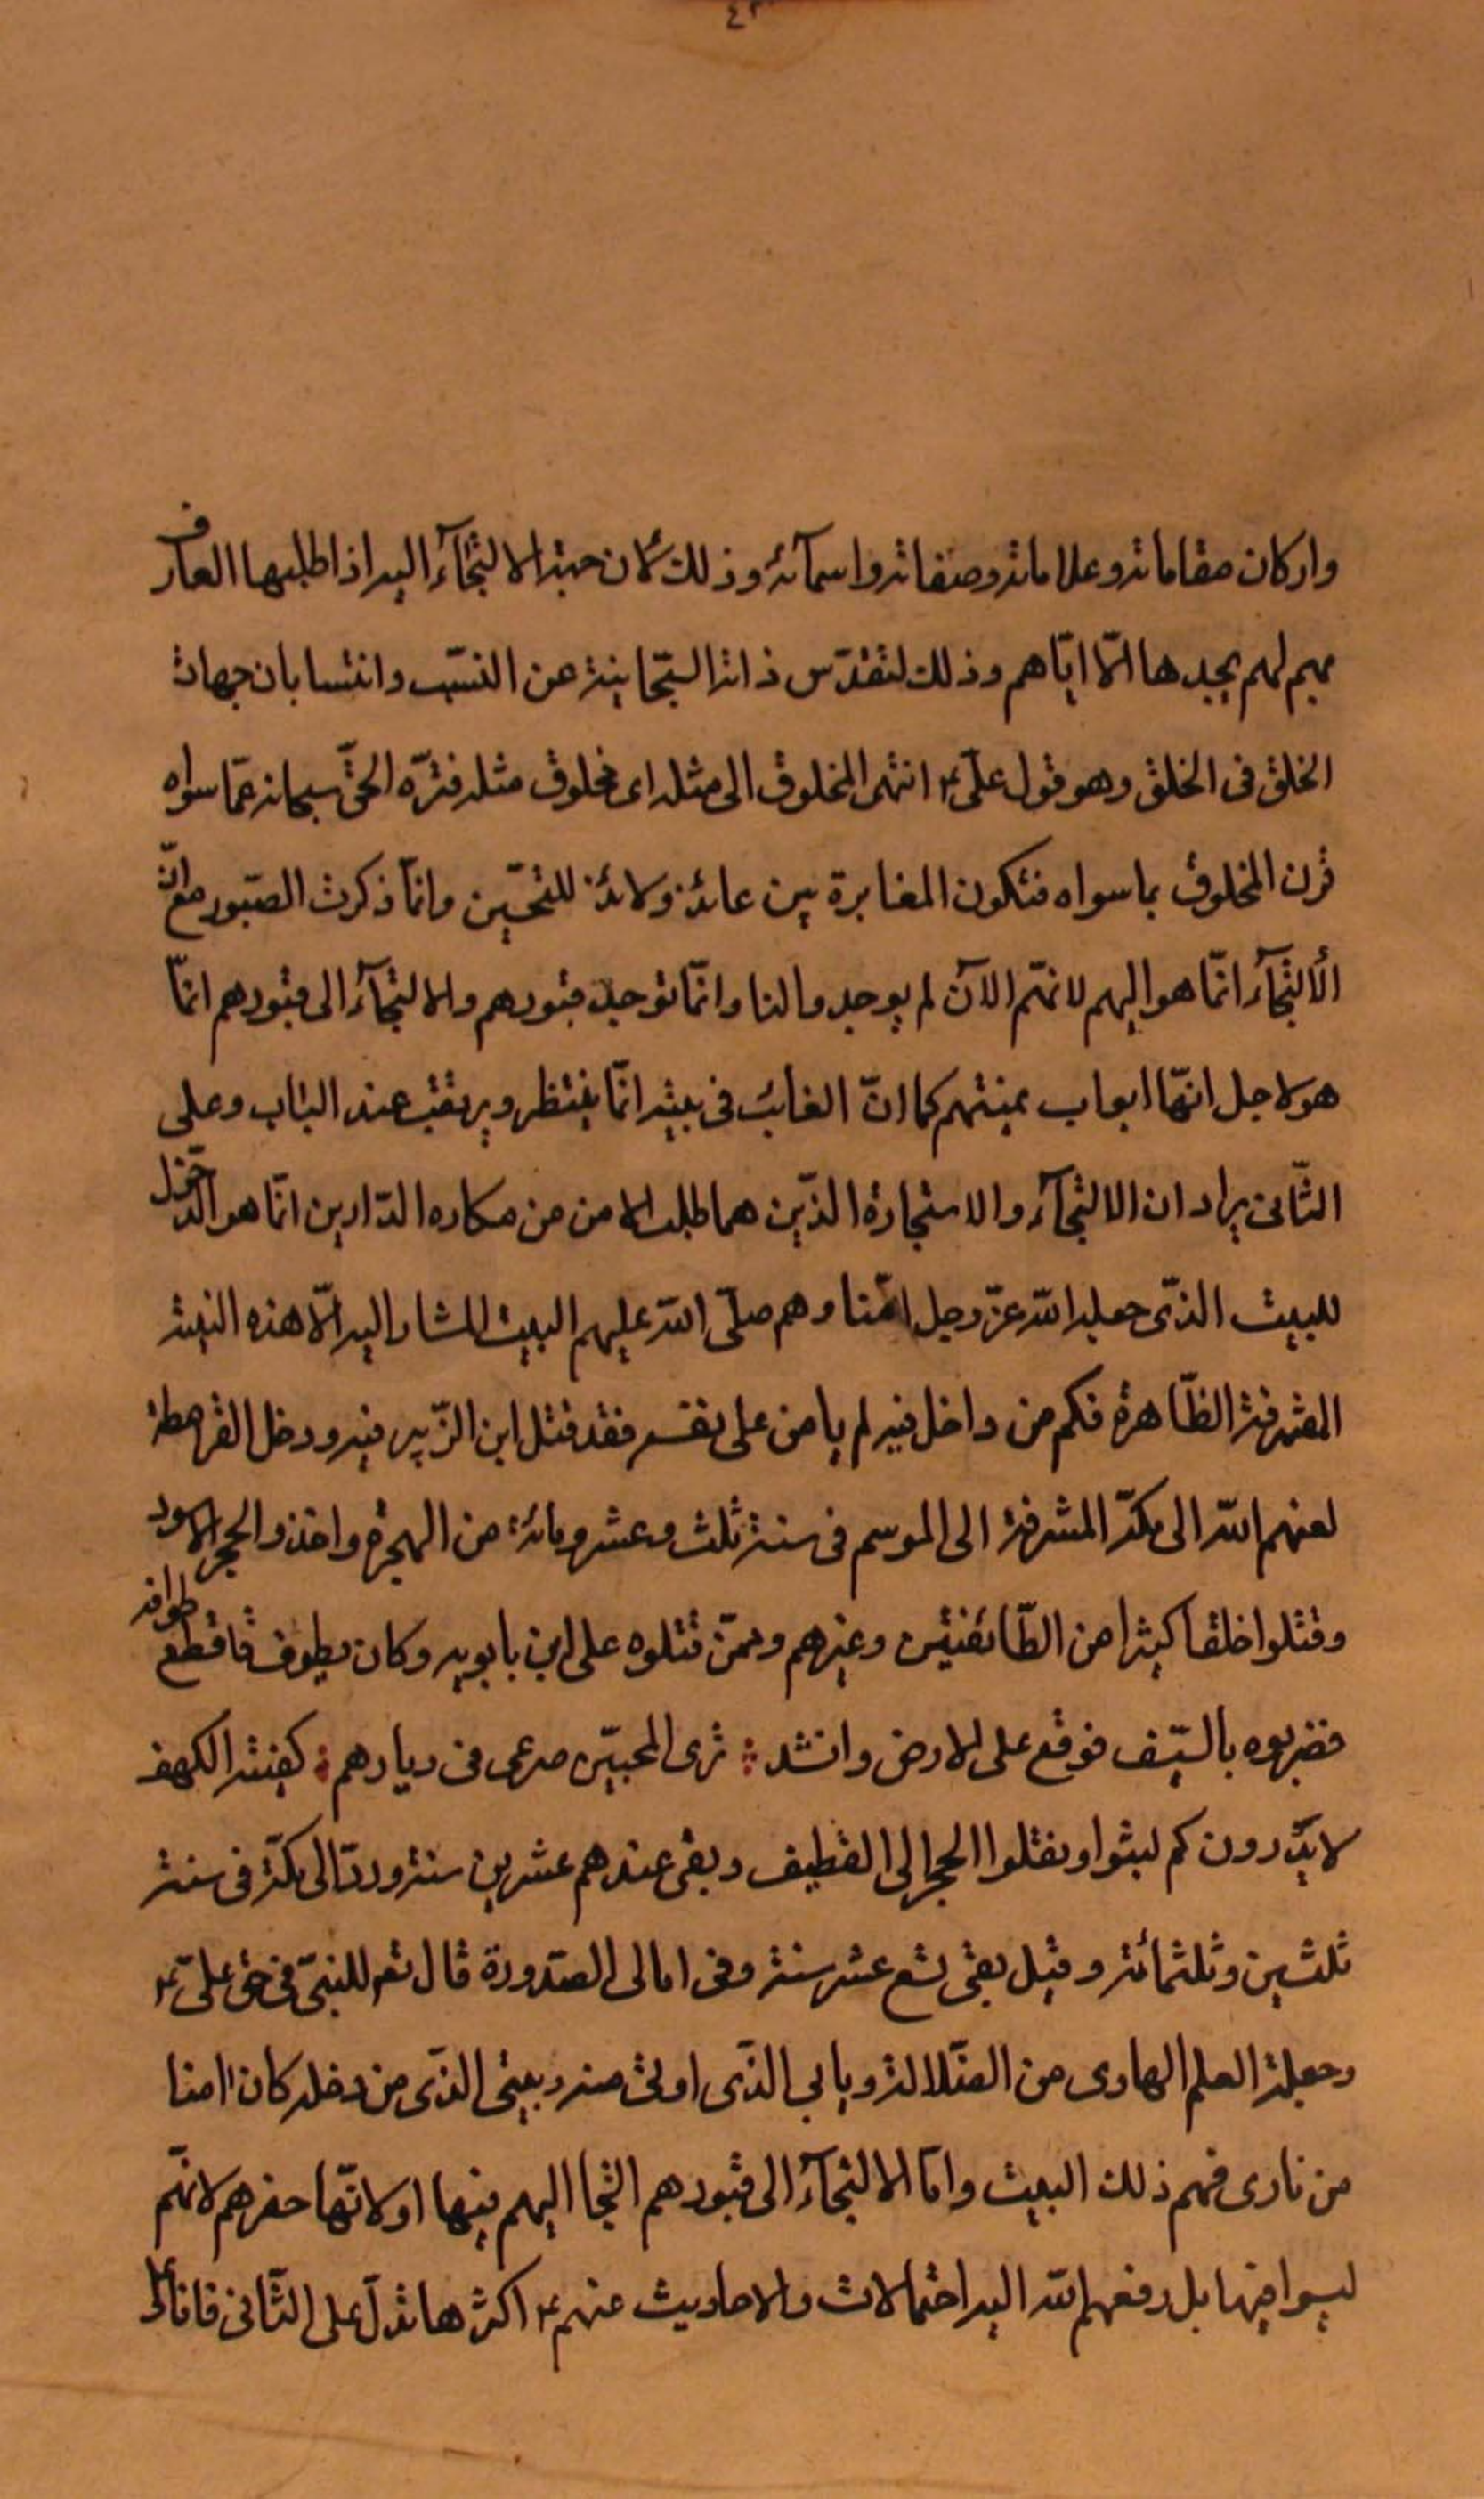 ٤٣
واركان مقاماته وعلاماته وصفاته واسمآئه وذلك لان جهة الالتجآء اليه اذا طلبها العارف
بهم لهم يجدها الّا ايّاهم وذلك لتقدّس ذاته السبّحانيّة عن النسّب وانتسابان جهات
الخلق فى الخلق وهو قول علىّ ع انتهى المخلوق الى مثله اى مخلوق مثله فنزّه الحقّ سبحانه عمّا سواه
قرن المخلوق بما سواه فتكون المغايرة بين عائذ ولائذ للتحّين وانمّا ذكرت القبور مع انّ
الألتجآء انمّا هو اليهم لانهّم الآن لم يوجدوا لنا وانمّا توجد قبورهم والالتجآء الى قبورهم انمّا
هو لاجل انهّا ابواب غيبتهم كما انّ الغائب فى بيته انمّا ينتظر ويرتقب عند الباب وعلى
الثّانى يراد ان الالتجآء والاستجارة الذّين هما طلب الامن من مكاره الدّارين انمّا هو الدّخول
للبيت الذّى جعله الله عزّ وجل امنا وهم صلىّ الله عليهم البيت المشار اليه الّا هذه البنية
المشرفة الظّاهرة فكم من داخل فيه لم يامن على نفسه فقد قتل ابن الزّبير فيه ودخل القرامطة
لعنهم الله الى مكّة المشرفة الى الموسم فى سنة ثلث وعشر ومائة من الهجرة واخذوا الحجر الاسود
وقتلوا خلقا كثيرا من الطّائفئين وغيرهم وممّن قتلوه على ابن بابويه وكان يطوف فاقطع طوافه
فضربوه بالسّيف فوقع على الارض وانشد ؛ ترى المحبيّن صرعى فى ديارهم ؛ كفتية الكهف
لا يدّرون كم لبثوا ونقلوا الحجر الى القطيف وبقى عندهم عشرين سنة وردّ الى مكّة فى سنة
ثلثين وثلثمائة وقيل بقى تسع عشر سنة وفى امالى الصّدورة قال تع للنبىّ فى حق علىّ ع
وجعلته العلم الهادى من الضّلالة وبابى الذّى اوتى منه وبيتى الذّى من دخله كان امنا
من نارى فهم ذلك البيت وامّا الالتجآء الى قبورهم التجا اليهم فيها او لانهّا حفرهم لانهّم
ليسوا فيها بل رفعهم الله اليه احتمالات والاحاديث عنهم ع اكثرها تدلّ على الثّانى